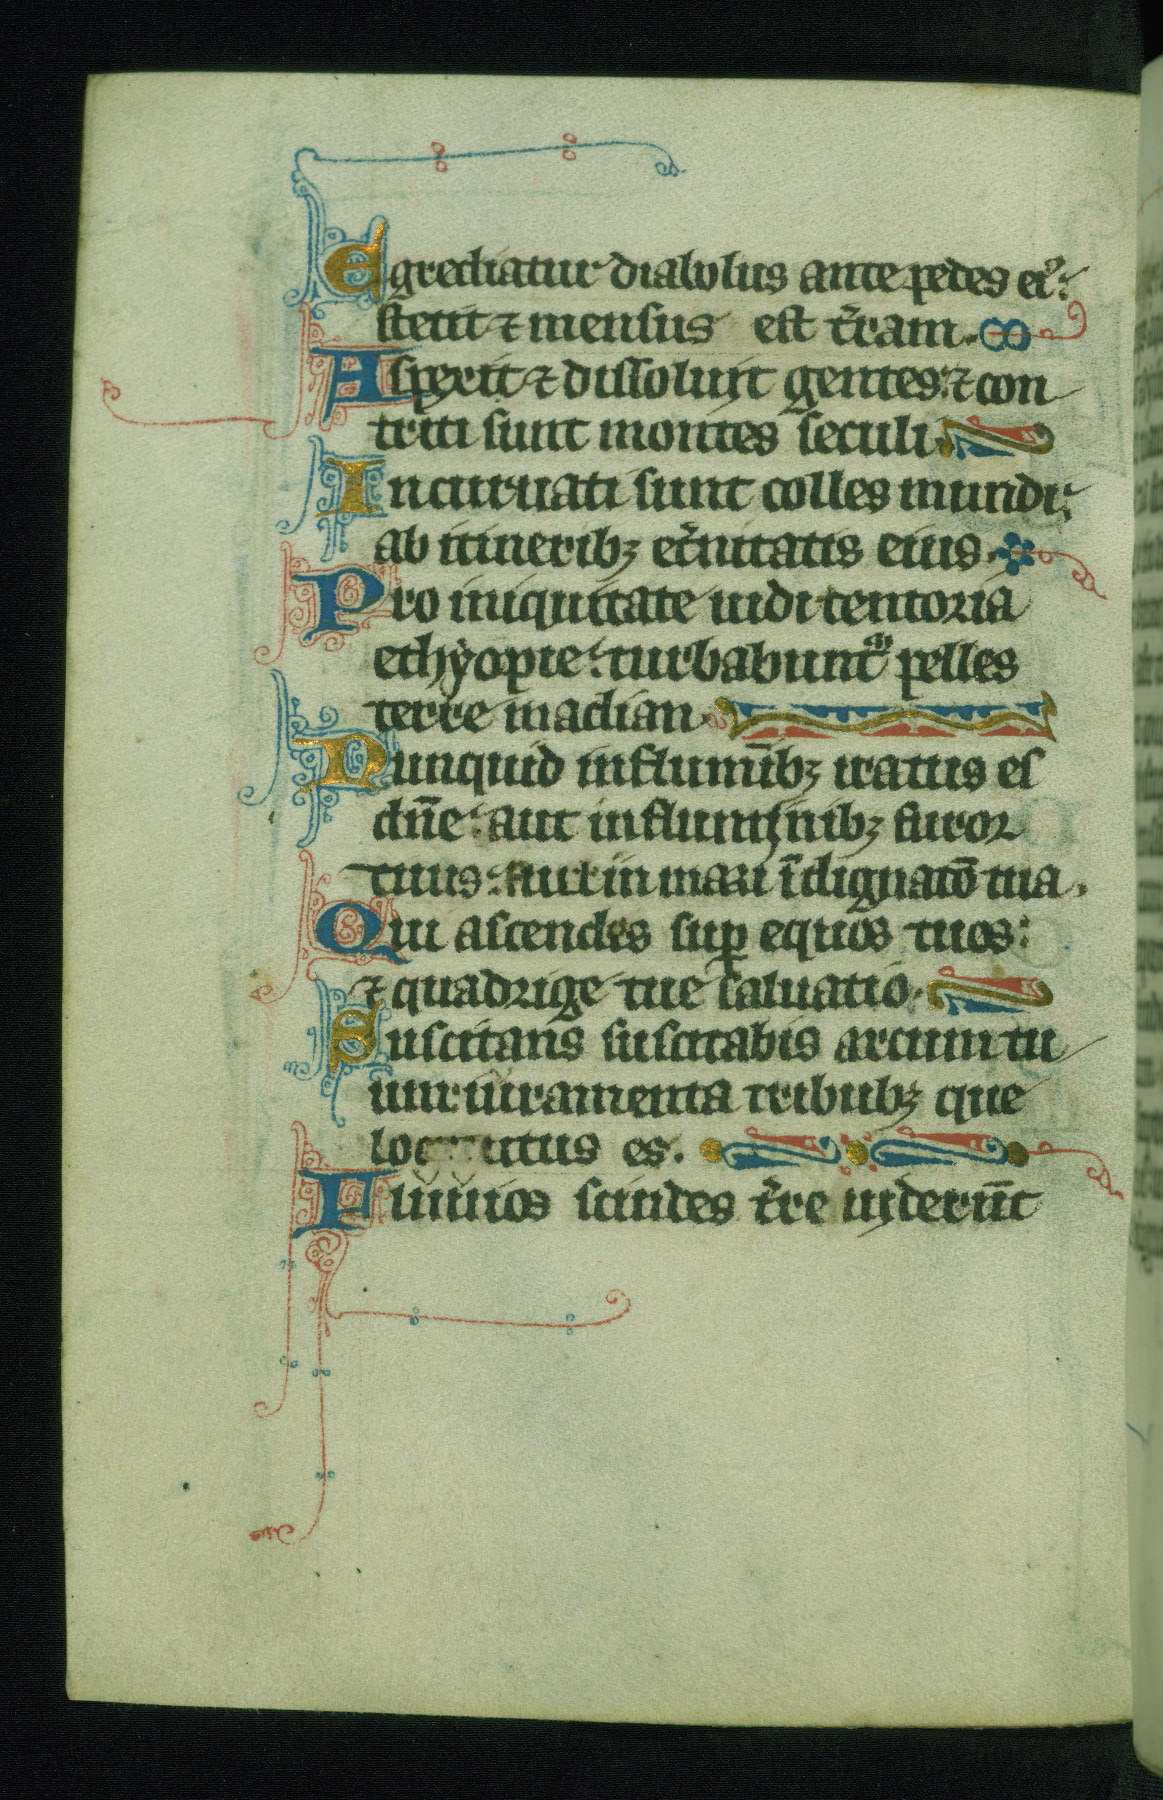 Egrediatur diabolus ante pedes eiꝰ:
stetit ⁊ mensus est t̉ram.
Aspexit ⁊ dissoluit gentes: ⁊ con
triti sunt montes seculi.
Incuruati sunt colles mundi:
ab itineribꝫ et̉nitatis eius.
Pro iniquitate uidi tentoria
ethyopie: turbabunt᷑ pelles
terre madian.
Nunquid in flumĩbꝫ iratus es
dñe: aut in fluminibꝫ furor
tuus: aut in mari ĩdignatõ tua.
Qui ascendes suꝑ equos tuos:
⁊ quadrige tue saluatio.
Suscitans suscitabis arcum tu
um: iuramenta tribubꝫ que
locutus es.
Fluuios scindes t̉re uiderũt